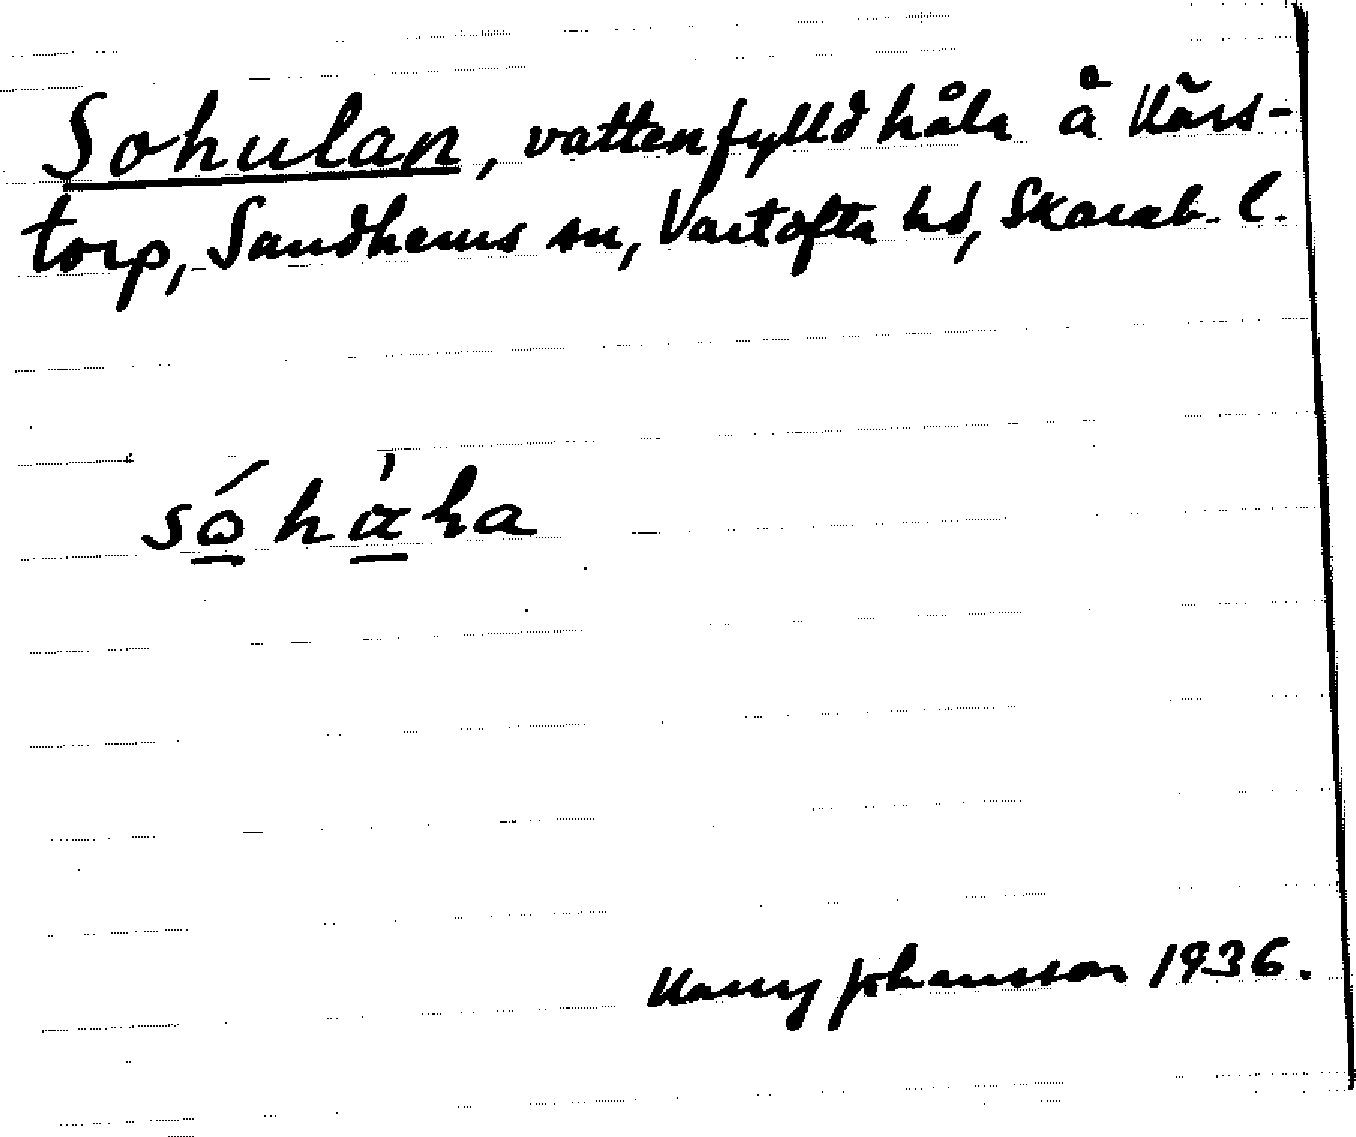 Sohulan, vattenfylld håla å Kårs-
torp, Sandhems sn, Vartofta hd, Skarab. l.
Harry Johansson 1936.